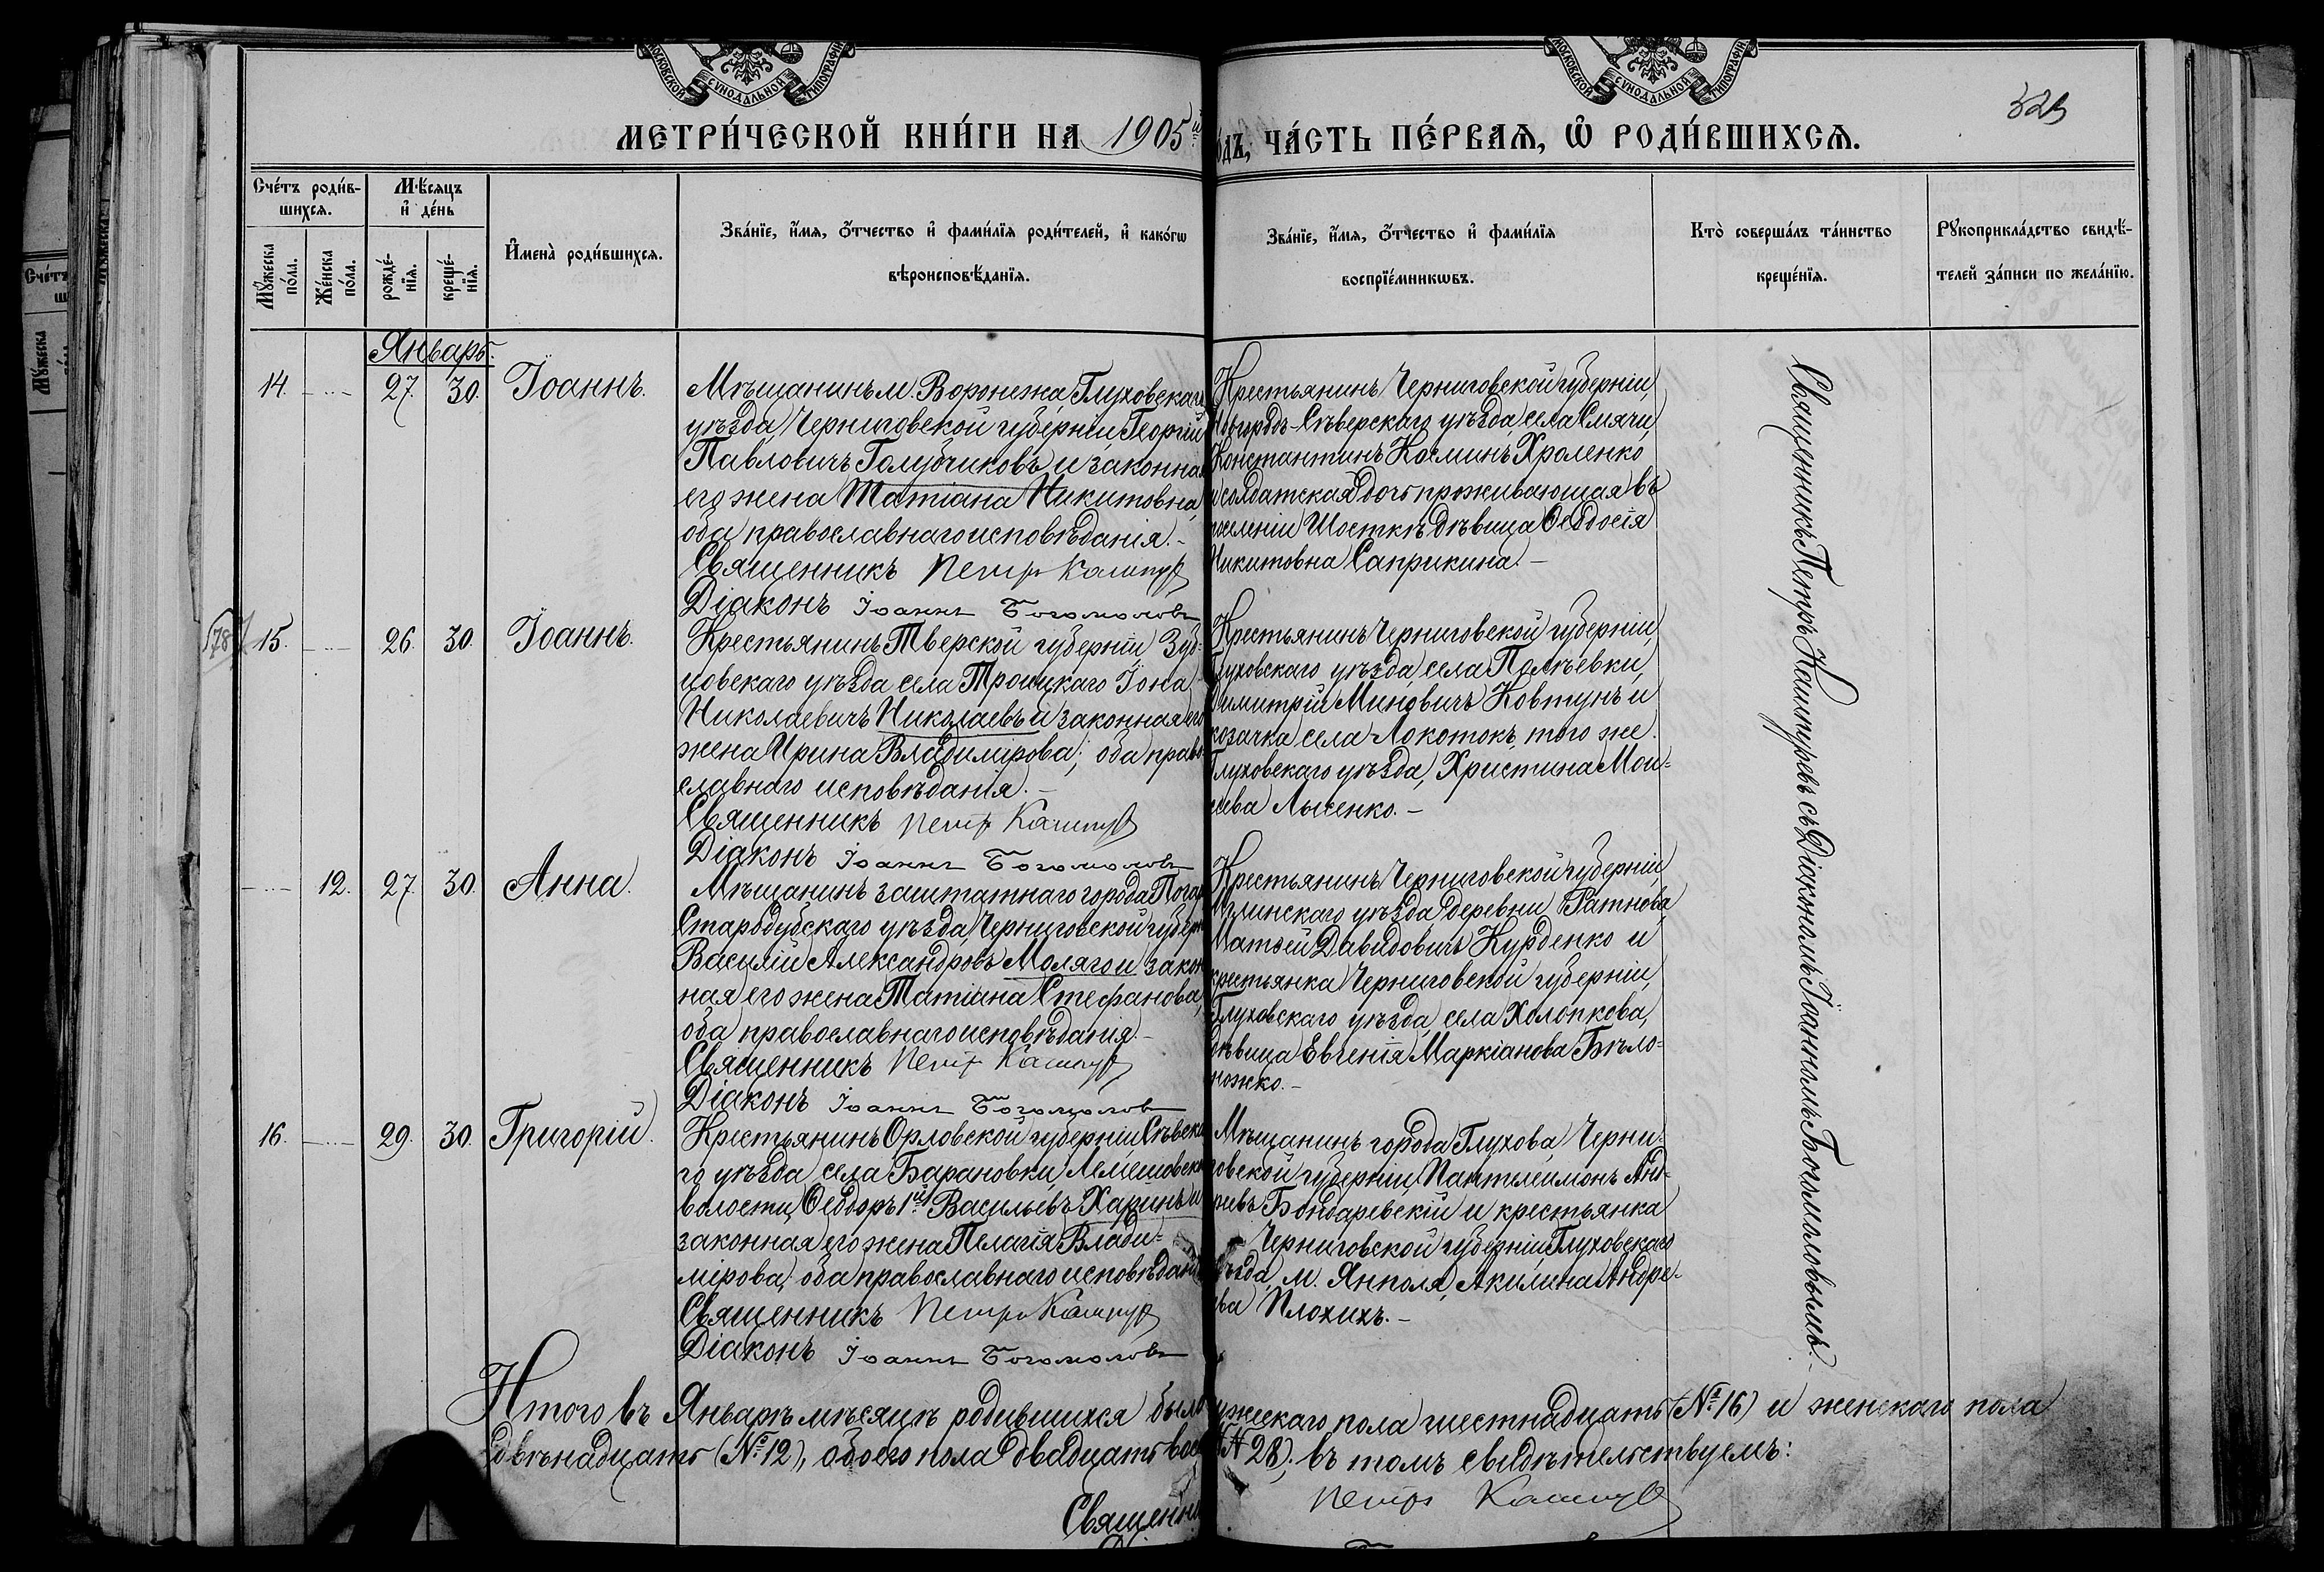 МОСКОВСКОЙ СѴНОДАЛЬНОЙ ТИПОГРАФІИ
МОСКОВСКОЙ СѴНОДАЛЬНОЙ ТИПОГРАФІИ
МЕТРИ́ЧЕСКОЙ КНИ́ГИ НА 1905й
ОДЪ, ЧА́СТЬ ПЕ́РВАѦ, Ѡ҆ РОДИ́ВШИХСѦ.
Сче́тъ роди́в-
шихсѧ.
Мꙋ́жеска по́ла.
Же́нска по́ла.
Мѣ́сѧцъ
и҆ де́нь
рожде́-нїѧ.
креще́-нїѧ.
И҆мена̀ роди́вшихсѧ.
Зва́нїе, и҆́мѧ, ѻ҆́тчество и҆ фами́лїѧ роди́телей, и҆ како́гѡ
вѣроисповѣ́данїѧ.
Зва́нїе, и҆́мѧ, ѻ҆́тчество и҆ фами́лїѧ
воспрїе́мникѡвъ.
Кто̀ соверша́лъ та́инство
креще́нїѧ.
Рꙋкоприкла́дство свидѣ́-
телей за́писи по жела́нїю.
Январь.
14. 27. 30. Іоаннъ.
Мѣщанинъ м. Воронежа, Глуховскаго
уѣзда, Черниговской губерніи Георгій
Павловичъ Голубчиковъ и законная
его жена Татіана Никитовна,
оба православнаго исповѣданія.-
Священникъ Петръ Кашпур
Діаконъ Іоаннъ Богомоловъ
Крестьянинъ Черниговской губерніи,
Новгородъ-Сѣверскаго уѣзда, села Смячи,
Константинъ Косминъ Хроленко
и солдатская дочь проживающая въ
поселеніи Шосткѣ дѣвица Ѳеодосія
Никитовна Саприкина.-
178 15. 26. 30. Іоаннъ.
Крестьянинъ Тверской губерніи Зуб-
цовскаго уѣзда, села Троицкаго Іона
Николаевичъ Николаевъ и законная его
жена Ирина Владимірова; оба право
славнаго исповѣданія.-
Священникъ Петръ Кашпур
Діаконъ Іоаннъ Богомоловъ
Крестьянинъ Черниговской губерніи,
Глуховскаго уѣзда, села Полѣевки,
Димитрій Миновичъ Ковтунъ и
козачка села Локотокъ, того же
Глуховскаго уѣзда, Христина Мои-
сеева Лысенко.-
12. 27. 30. Анна.
Мѣщанинъ заштатнаго города Погар
Стародубскаго уѣзда, Черниговской губерн
Василій Александровъ Моляго и закон
ная его жена Татіана Стефанова,
оба православнаго исповѣданія.-
Священникъ Петръ Кашпур
Діаконъ Іоаннъ Богомолов
Крестьянинъ Черниговской губерніи,
Мглинскаго уѣзда, деревни Ратнова
Матѳей Давидовичъ Курденко и
крестьянка Черниговской губерніи,
Глуховскаго уѣзда, села Холопкова,
дѣвица Евгенія Маркіанова Бѣло-
ножко.-
16. 29. 30. Григорій.
Крестьянинъ Орловской губерніи Сѣвска
го уѣзда, села Барановки, Лемешовск
волости, Ѳеодоръ 1й Васильевъ Харинъ и
законная его жена Пелагія Влади-
мірова, оба православнаго исповѣдані
Священникъ Петръ Кашпур
Діаконъ Іоаннъ Богомоловъ
Мѣщанинъ города Глухова, Черни-
говской губерніи, Пантелеимонъ Анд-
реевъ Бондаревскій и крестьянка
Черниговской губерніи, Глуховскаго
уѣзда, м. Янполя, Акилина Андре-
ева Плохихъ.-
Священникъ Петръ Кашпуревъ съ Діакономъ Іоанномъ Богомоловымъ.-
Итого въ Январѣ мѣсяцѣ родившихся было мужескаго пола шестнадцать (№ 16) и женскаго пола
двѣнадцать (№ 12), обоего пола двадцать вос (№ 28); въ томъ свидѣтельствуемъ:
Священни Петръ Кашпур